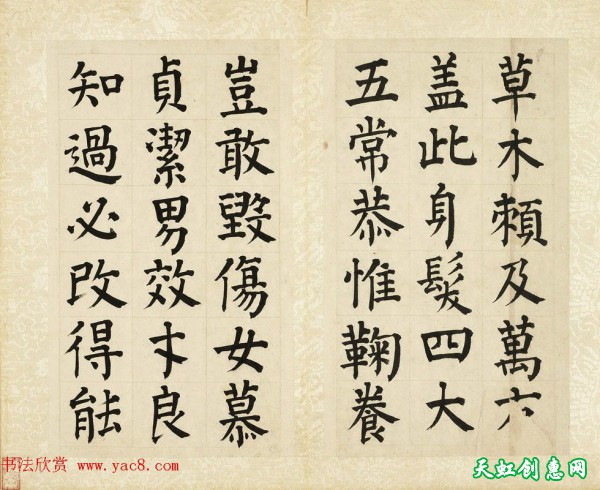 草木頼及萬方
盖此身髮四大
五常恭惟鞠養
豈敢毀傷女慕
貞潔男效才良
知過必改得能
书法欣赏 www.yac8.com
天虹创惠网